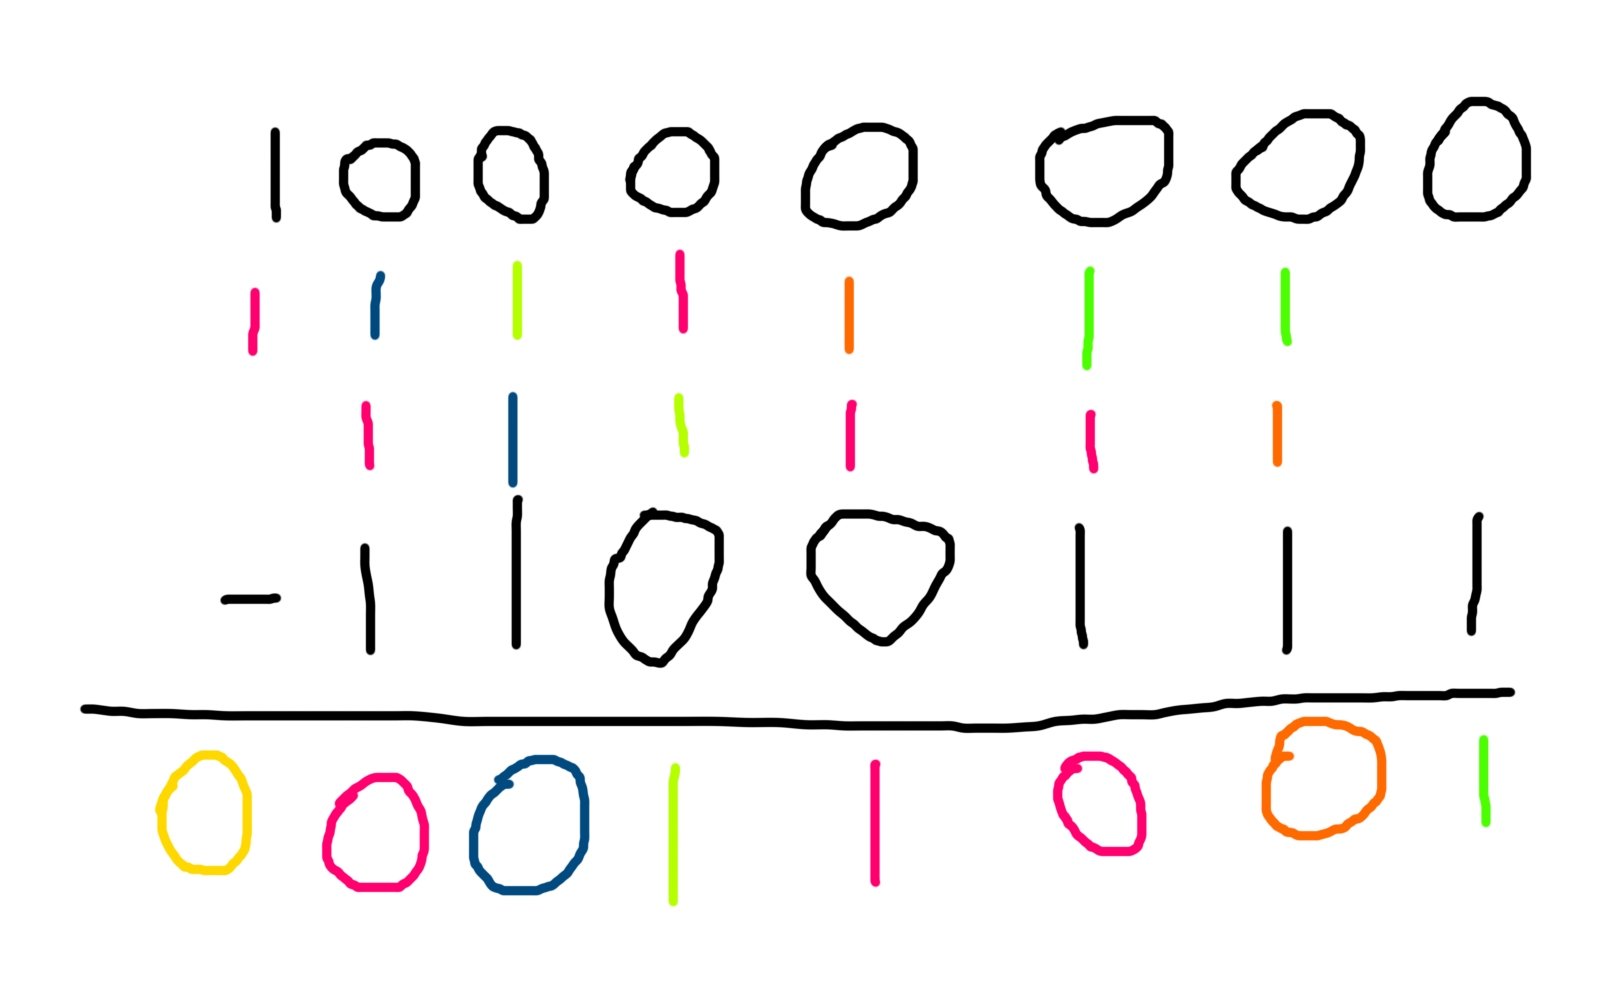 1 0 0 0 0 0 0 0
1 1 1 1 1 1 1
1 1 1 1 1 1
- 1 1 0 0 1 1 1
0 0 0 1 1 0 0 1